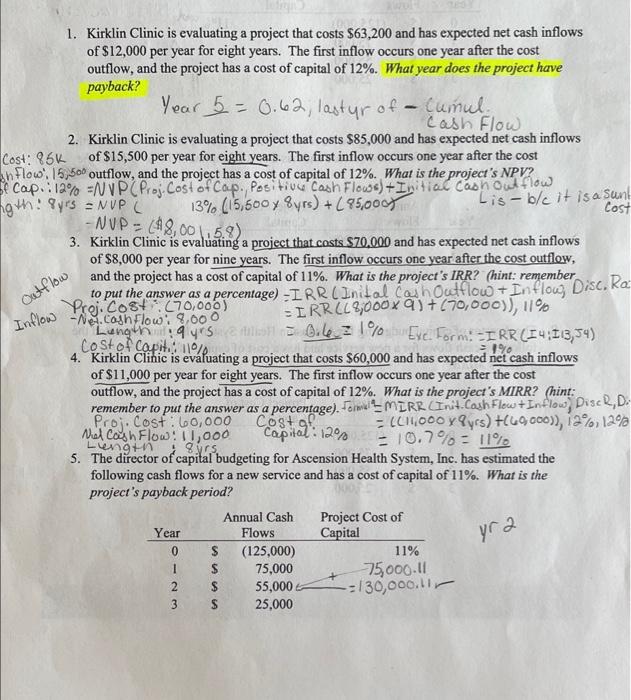 1. Kirklin Clinic is evaluating a project that costs $63,200 and has expected net cash inflows
of $12,000 per year for eight years. The first inflow occurs one year after the cost
outflow, and the project has a cost of capital of 12%. What year does the project have
payback?
Year 5 = 0.62, last yr of - Cumul.
Cash Flow
2. Kirklin Clinic is evaluating a project that costs $85,000 and has expected net cash inflows
Cost: 85K of $15,500 per year for eight years. The first inflow occurs one year after the cost
Flow: 15,500 outflow, and the project has a cost of capital of 12%. What is the project's NPV?
Cap.: 12% =NVP(Proj. Cost of Cap., Positive Cash Flows)+Initial Cash Outflow
8 yrs = NVP ( 13% (15,500 x 8yrs) + (85,000) Lis - b/c it is a sunk
Cost
- NVP = ($8,001.58)
3. Kirklin Clinic is evaluating a project that costs $70,000 and has expected net cash inflows
of $8,000 per year for nine years. The first inflow occurs one year after the cost outflow,
and the project has a cost of capital of 11%. What is the project's IRR? (hint: remember
Outflow to put the answer as a percentage) =IRR (Inital Cash Outflow + Inflow, Disc. Ra
Proj. Cost: (70,000) = IRR ((8,000 x 9) + (70,000)), 11%
Inflow - Net Cash Flow: 8,000
Length: 9 yrs = 0.6 = 1% Exc. Form: =IRR (I4:I13, J4)
Cost of Capit.: 11% = 1%
4. Kirklin Clinic is evaluating a project that costs $60,000 and has expected net cash inflows
of $11,000 per year for eight years. The first inflow occurs one year after the cost
outflow, and the project has a cost of capital of 12%. What is the project's MIRR? (hint:
remember to put the answer as a percentage). Formul = MIRR (Init. Cash Flow + Inflow, Disc R, D.
Proj. Cost: 60,000 Cost of = ((11,000 x 8yrs) + (60,000)), 12%, 12%
Net Cash Flow: 11,000 Capital: 12% = 10.7% = 11%
Length : 8yrs
5. The director of capital budgeting for Ascension Health System, Inc. has estimated the
following cash flows for a new service and has a cost of capital of 11%. What is the
project's payback period?
Annual Cash Project Cost of
Year Flows Capital yr 2
0 $ (125,000) 11%
1 $ 75,000 + 75,000.11
2 $ 55,000 =130,000.11
3 $ 25,000